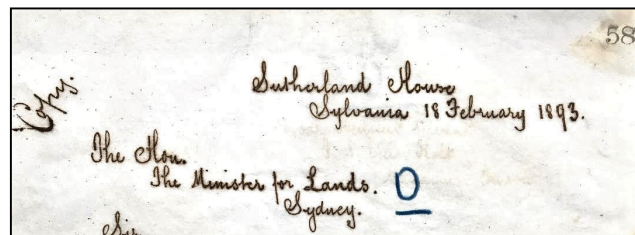 58
Copy.
Sutherland House
Sylvania 18 February 1893.
The Hon.
The Minister for Lands. O
Sydney.
Sir